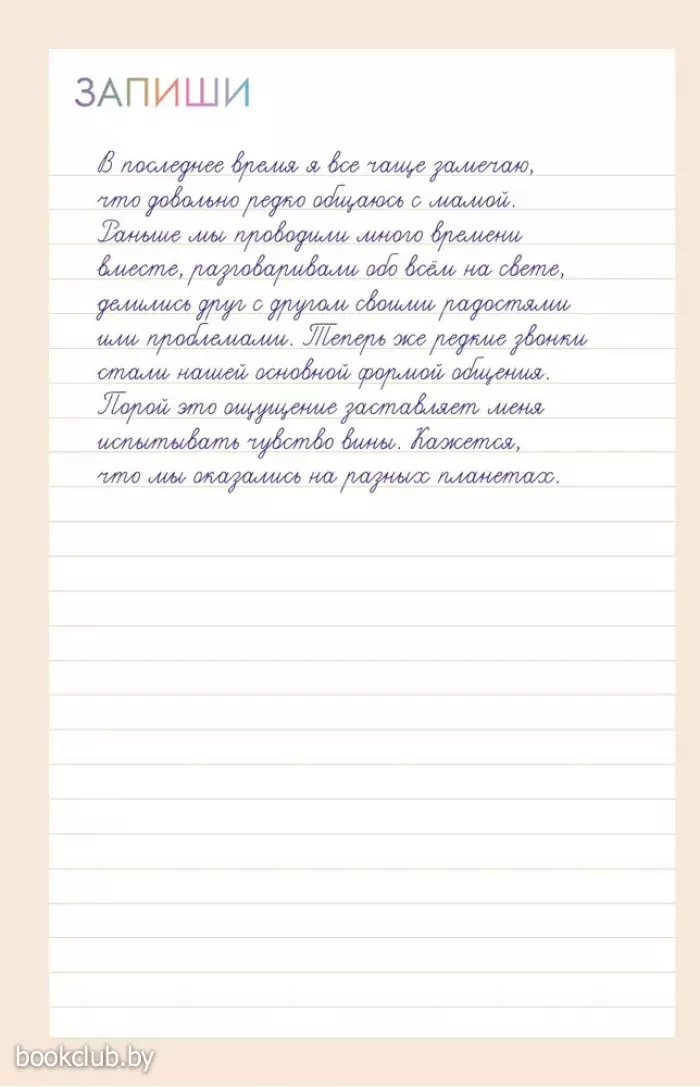 ЗАПИШИ
В последнее время я все чаще замечаю,
что довольно редко общаюсь с мамой.
Раньше мы проводили много времени
вместе, разговаривали обо всём на свете,
делились друг с другом своими радостями
или проблемами. Теперь же редкие звонки
стали нашей основной формой общения.
Порой это ощущение заставляет меня
испытывать чувство вины. Кажется,
что мы оказались на разных планетах.
bookclub.by